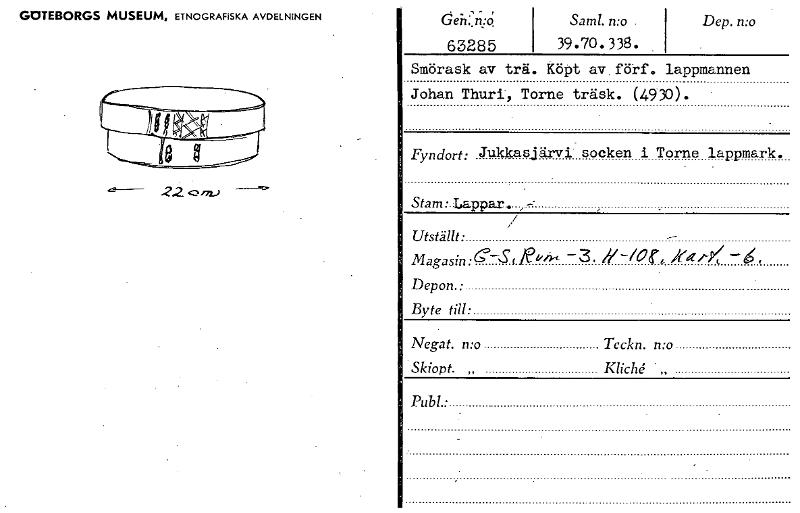 GÖTEBORGS MUSEUM, ETNOGRAFISKA AVDELNINGEN
22 cm
Gen. n:o Saml. n:o Dep. n:o
63285 39.70.338.
Smörask av trä. Köpt av förf. lappmannen
Johan Thuri, Torne träsk. (4930).
Fyndort: Jukkasjärvi socken i Torne lappmark.
Stam: Lappar.
Utställt:
Magasin: G-S. Rum -3. H-108. Kart. -6.
Depon.:
Byte till:
Negat. n:o Teckn. n:o
Skiopt. „ Kliché „
Publ.: